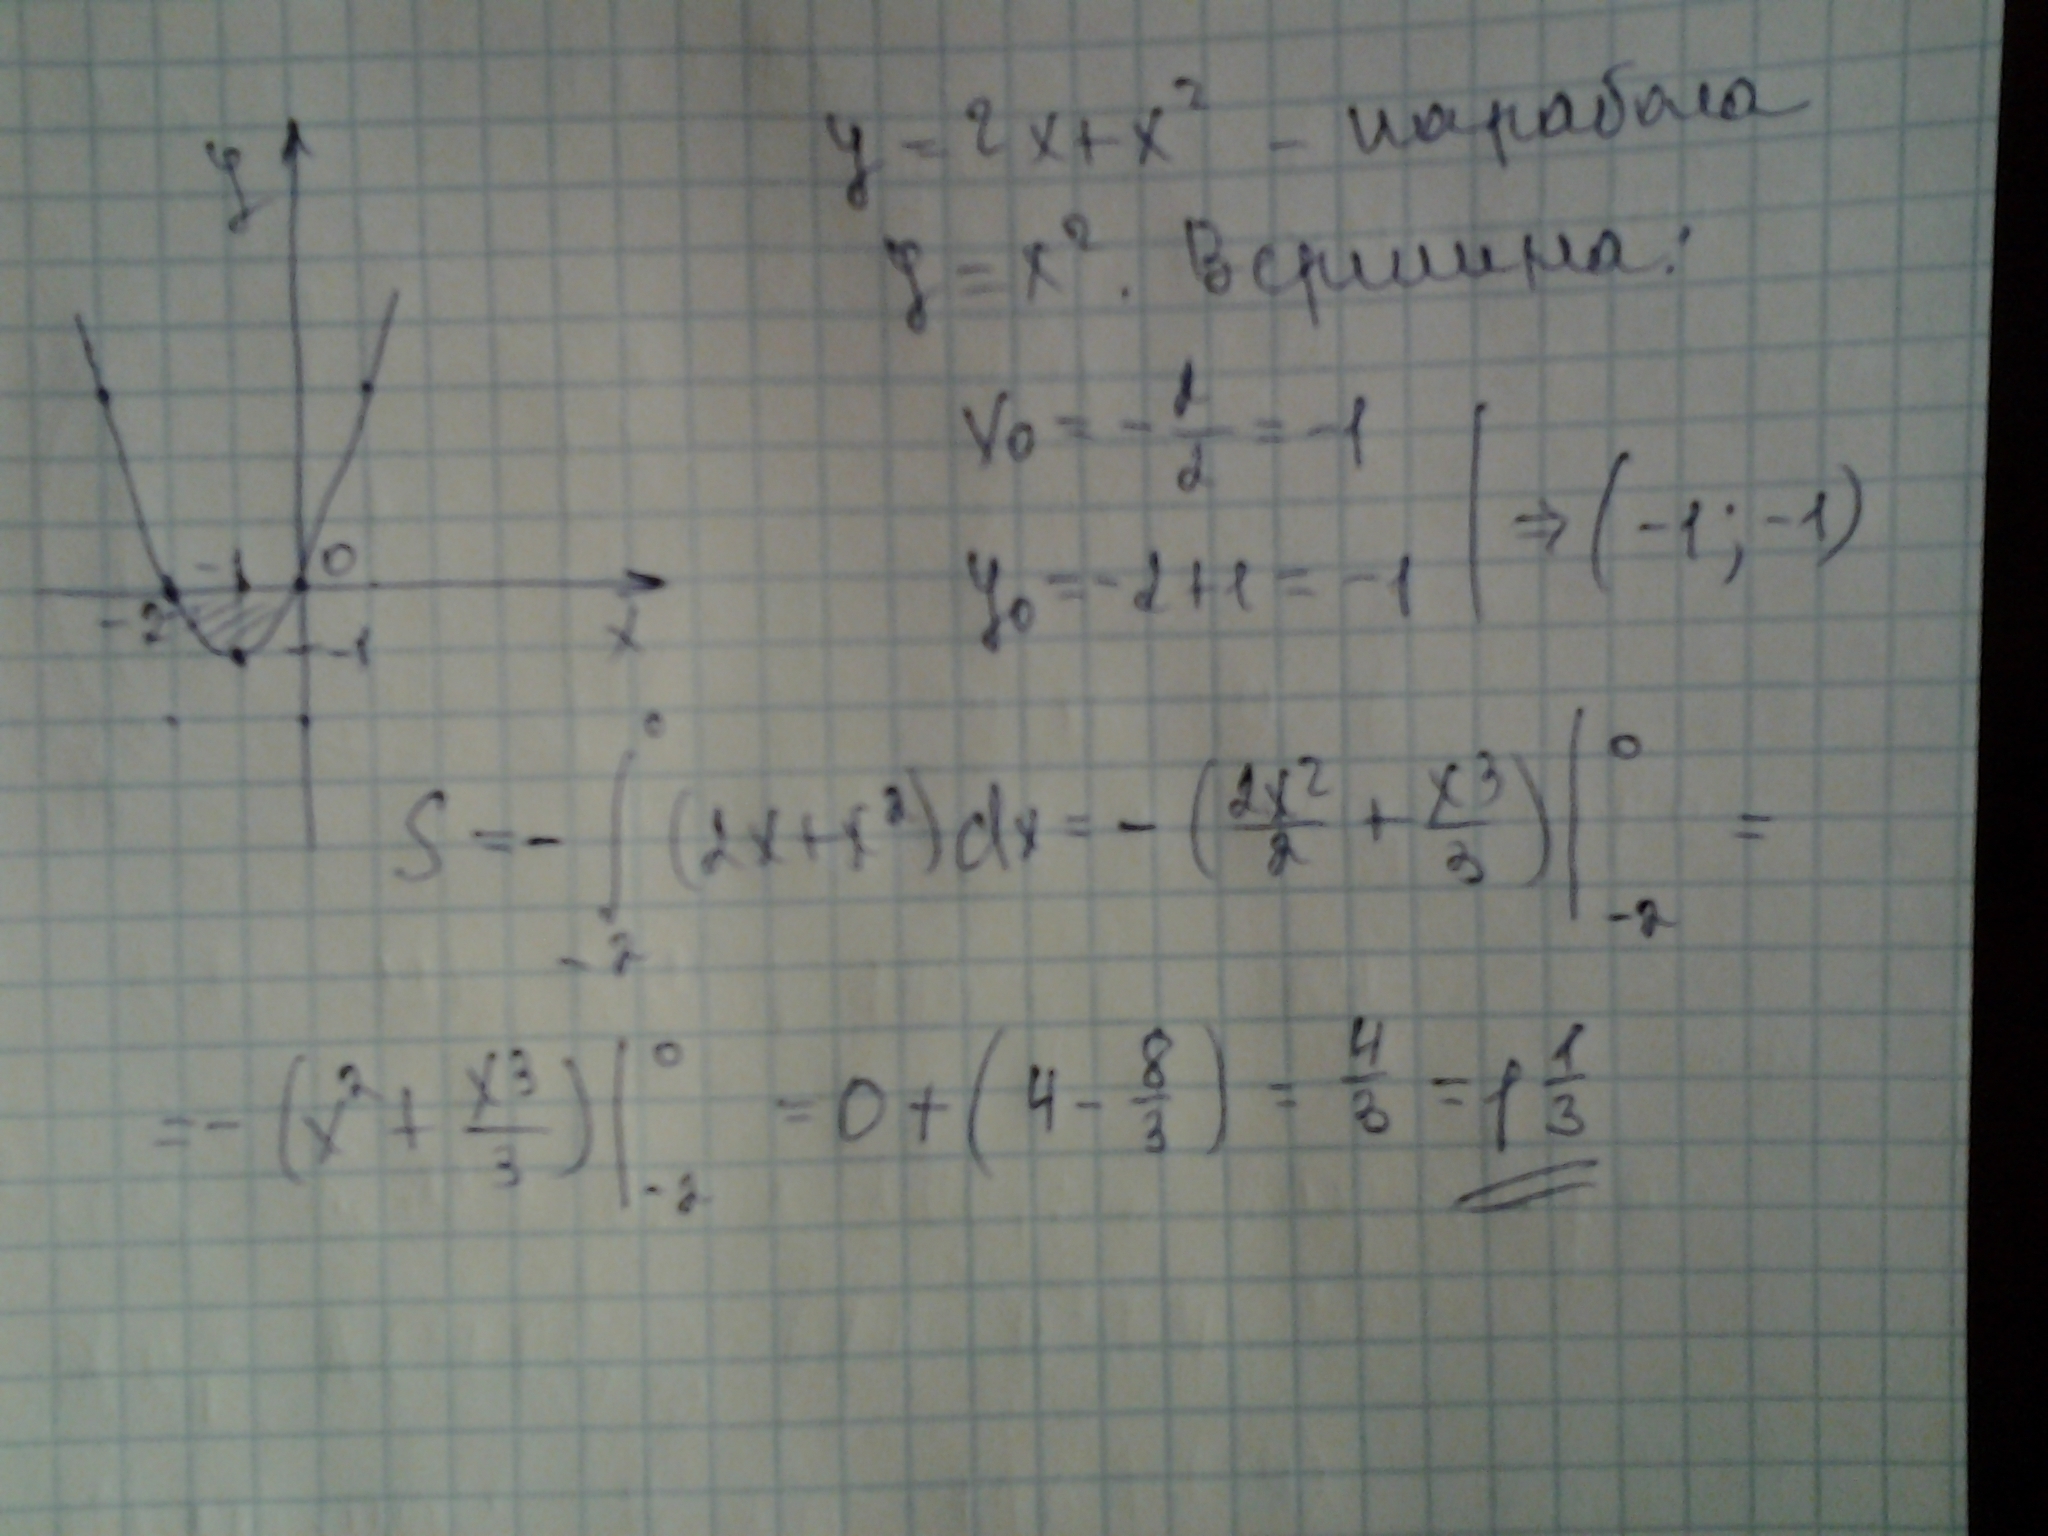 y = 2x+x² - парабола
y = x². Вершина:
x₀ = -2/2 = -1
y₀ = -2+1 = -1 | ⇒ (-1; -1)
y
-1 0
-2
-1
x
S = - ∫₋₂⁰ (2x+x²)dx = - (2x²/2 + x³/3) |₋₂⁰ =
= - (x² + x³/3) |₋₂⁰ = 0 + (4 - 8/3) = 4/3 = 1 1/3